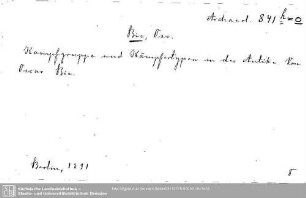 Archaeol. 841
Bie, Osc.
Kampfgruppe und Kämpfertypen in der Antike. Von
Oscar Bie.
Berlin, 1891
8
Sächsische Landesbibliothek -
Staats- und Universitätsbibliothek Dresden